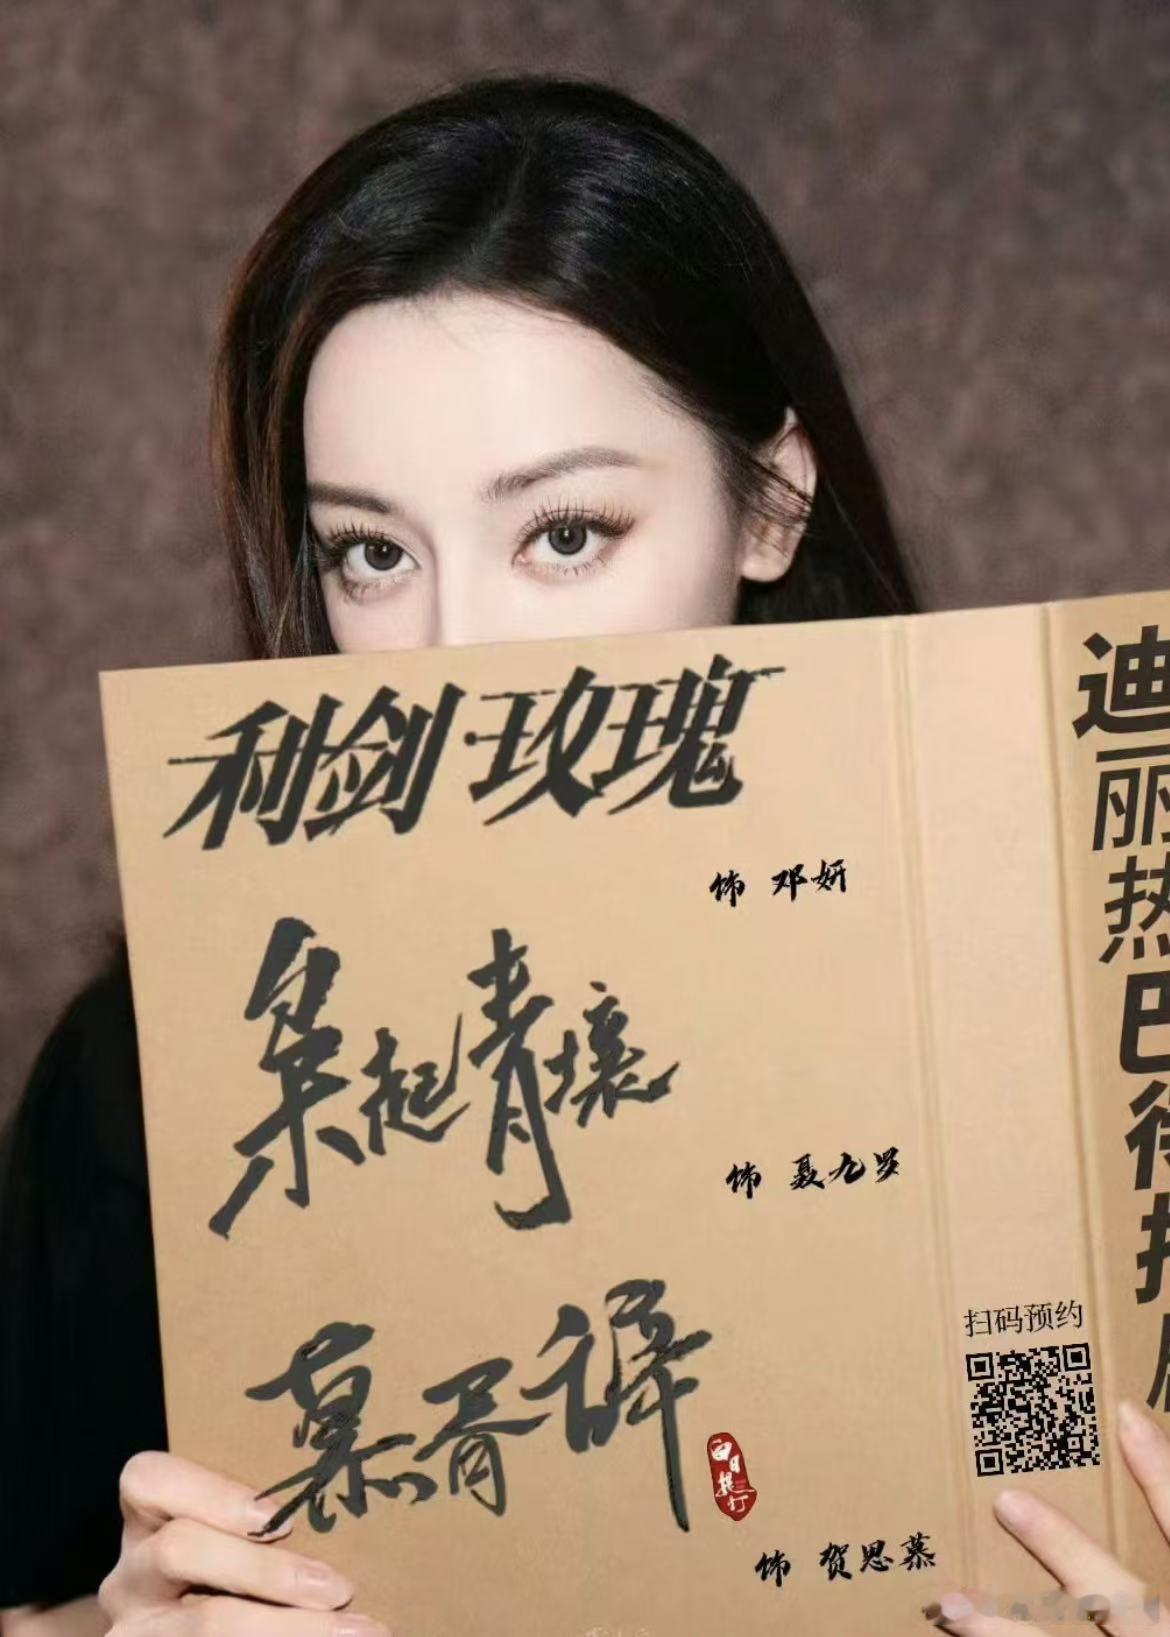 利剑·玫瑰
饰 邓妍
枭起青壤
饰 聂九罗
慕胥辞
白日提灯
饰 贺思慕
扫码预约
迪丽热巴待播